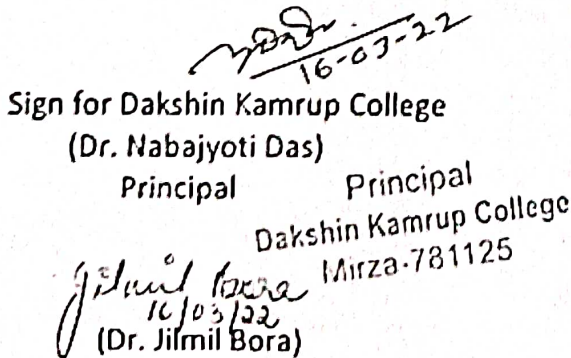 16-03-22
Sign for Dakshin Kamrup College
(Dr. Nabajyoti Das)
Principal
Principal
Dakshin Kamrup College
Mirza-781125
Jilmil Bora
16/03/22
(Dr. Jilmil Bora)